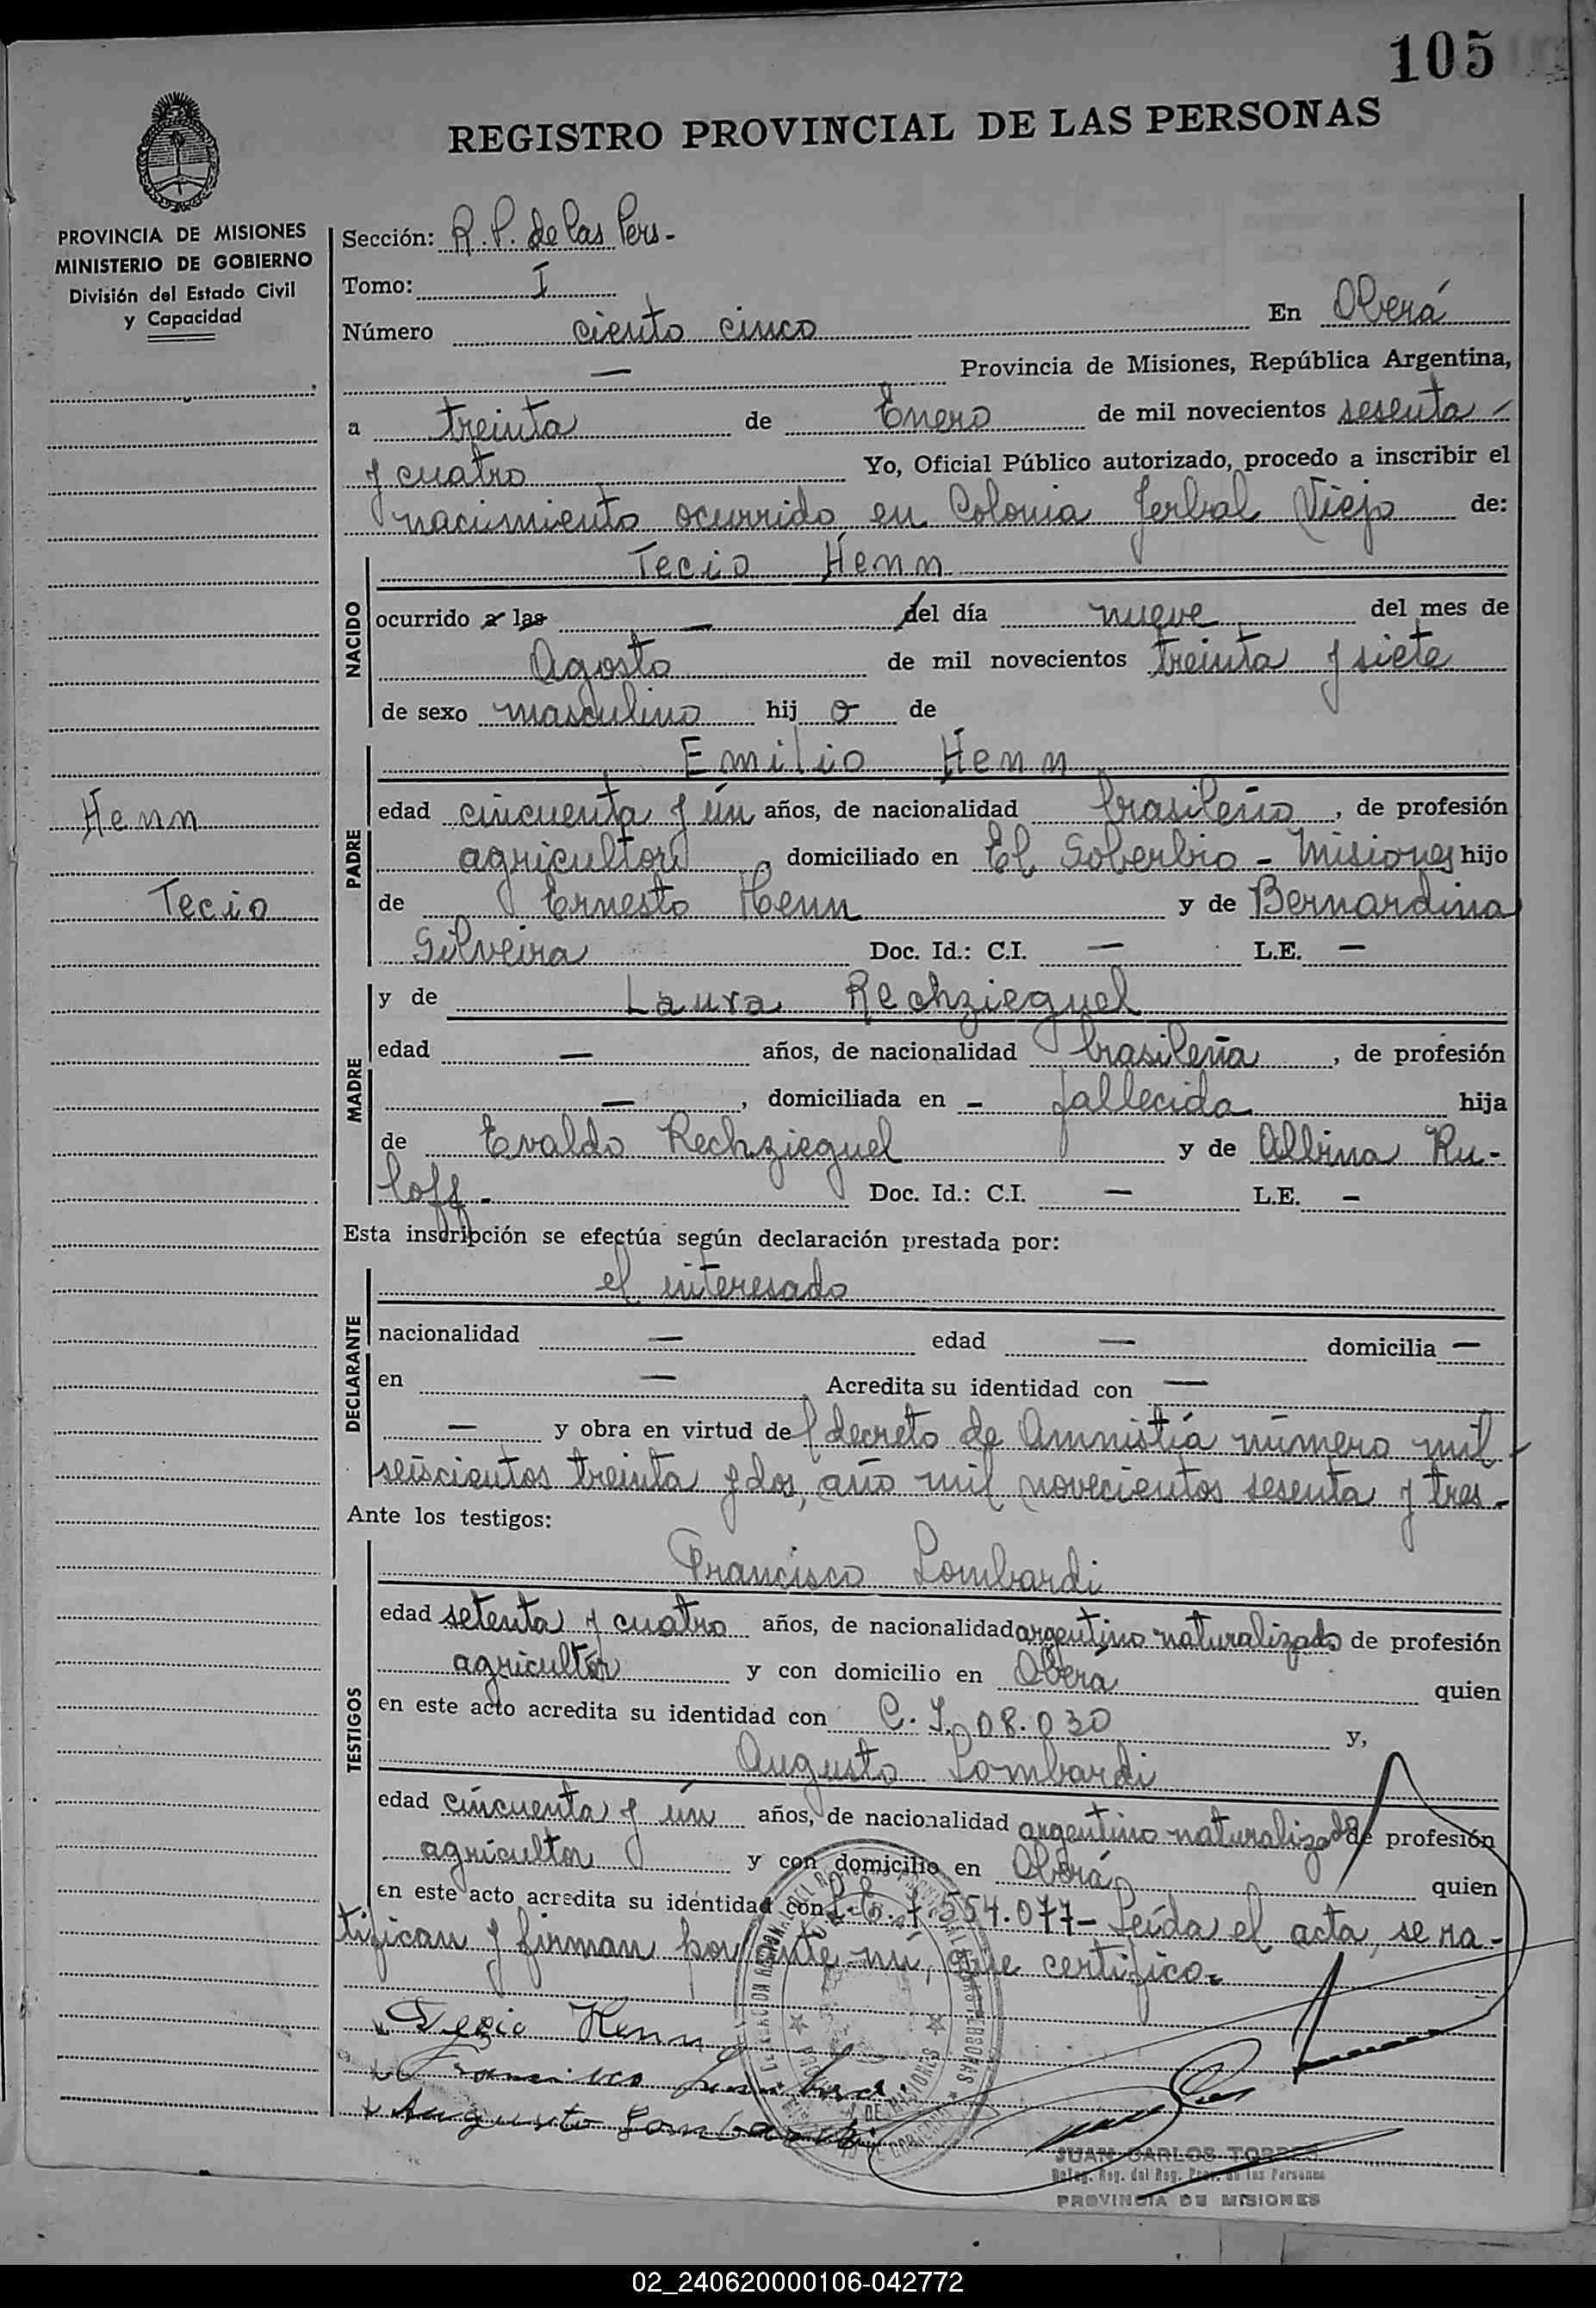 105
REGISTRO PROVINCIAL DE LAS PERSONAS
PROVINCIA DE MISIONES
MINISTERIO DE GOBIERNO
División del Estado Civil
y Capacidad
Henn
Tecio
Sección: R. P. de las Pers-
Tomo: I
Número ciento cinco En Oberá
— Provincia de Misiones, República Argentina,
a treinta de Enero de mil novecientos sesenta
y cuatro Yo, Oficial Público autorizado, procedo a inscribir el
nacimiento ocurrido en Colonia Yerbal Viejo de:
NACIDO
Tecio Henn
ocurrido a las — del día nueve del mes de
Agosto de mil novecientos treinta y siete
de sexo masculino hij o de
PADRE
Emilio Henn
edad cincuenta y ún años, de nacionalidad brasileño, de profesión
agricultor, domiciliado en El Soberbio - Misiones hijo
de Ernesto Henn y de Bernardina
Silveira Doc. Id.: C.I. — L.E. —
MADRE
y de Laura Rechzieguel
edad — años, de nacionalidad brasileña, de profesión
—, domiciliada en - fallecida hija
de Evaldo Rechzieguel y de Albina Ru-
loff - Doc. Id.: C.I. — L.E. —
Esta inscripción se efectúa según declaración prestada por:
DECLARANTE
el interesado
nacionalidad — edad — domicilia —
en — Acredita su identidad con —
— y obra en virtud del decreto de Amnistía número mil
seiscientos treinta y dos, año mil novecientos sesenta y tres-
Ante los testigos:
TESTIGOS
Francisco Lombardi
edad setenta y cuatro años, de nacionalidad argentino naturalizado de profesión
agricultor y con domicilio en Oberá quien
en este acto acredita su identidad con C. I. 08.030 y,
Augusto Lombardi
edad cincuenta y ún años, de nacionalidad argentino naturalizado de profesión
agricultor y con domicilio en Oberá quien
en este acto acredita su identidad con L. E. 7.554.077- Leída el acta, se ra-
tifican y firman por ante mí, que certifico-
Tecio Henn
Francisco Lombardi
Augusto Lombardi
JUAN CARLOS TORRES
Deleg. Reg. del Reg. Prov. de las Personas
PROVINCIA DE MISIONES
02_240620000106-042772